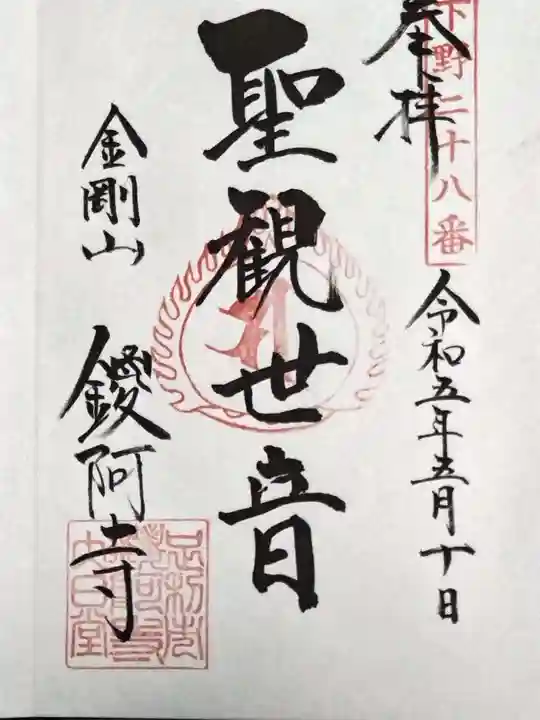 下野二十八番
奉拝
令和五年五月十日
聖観世音
金剛山
鑁阿寺